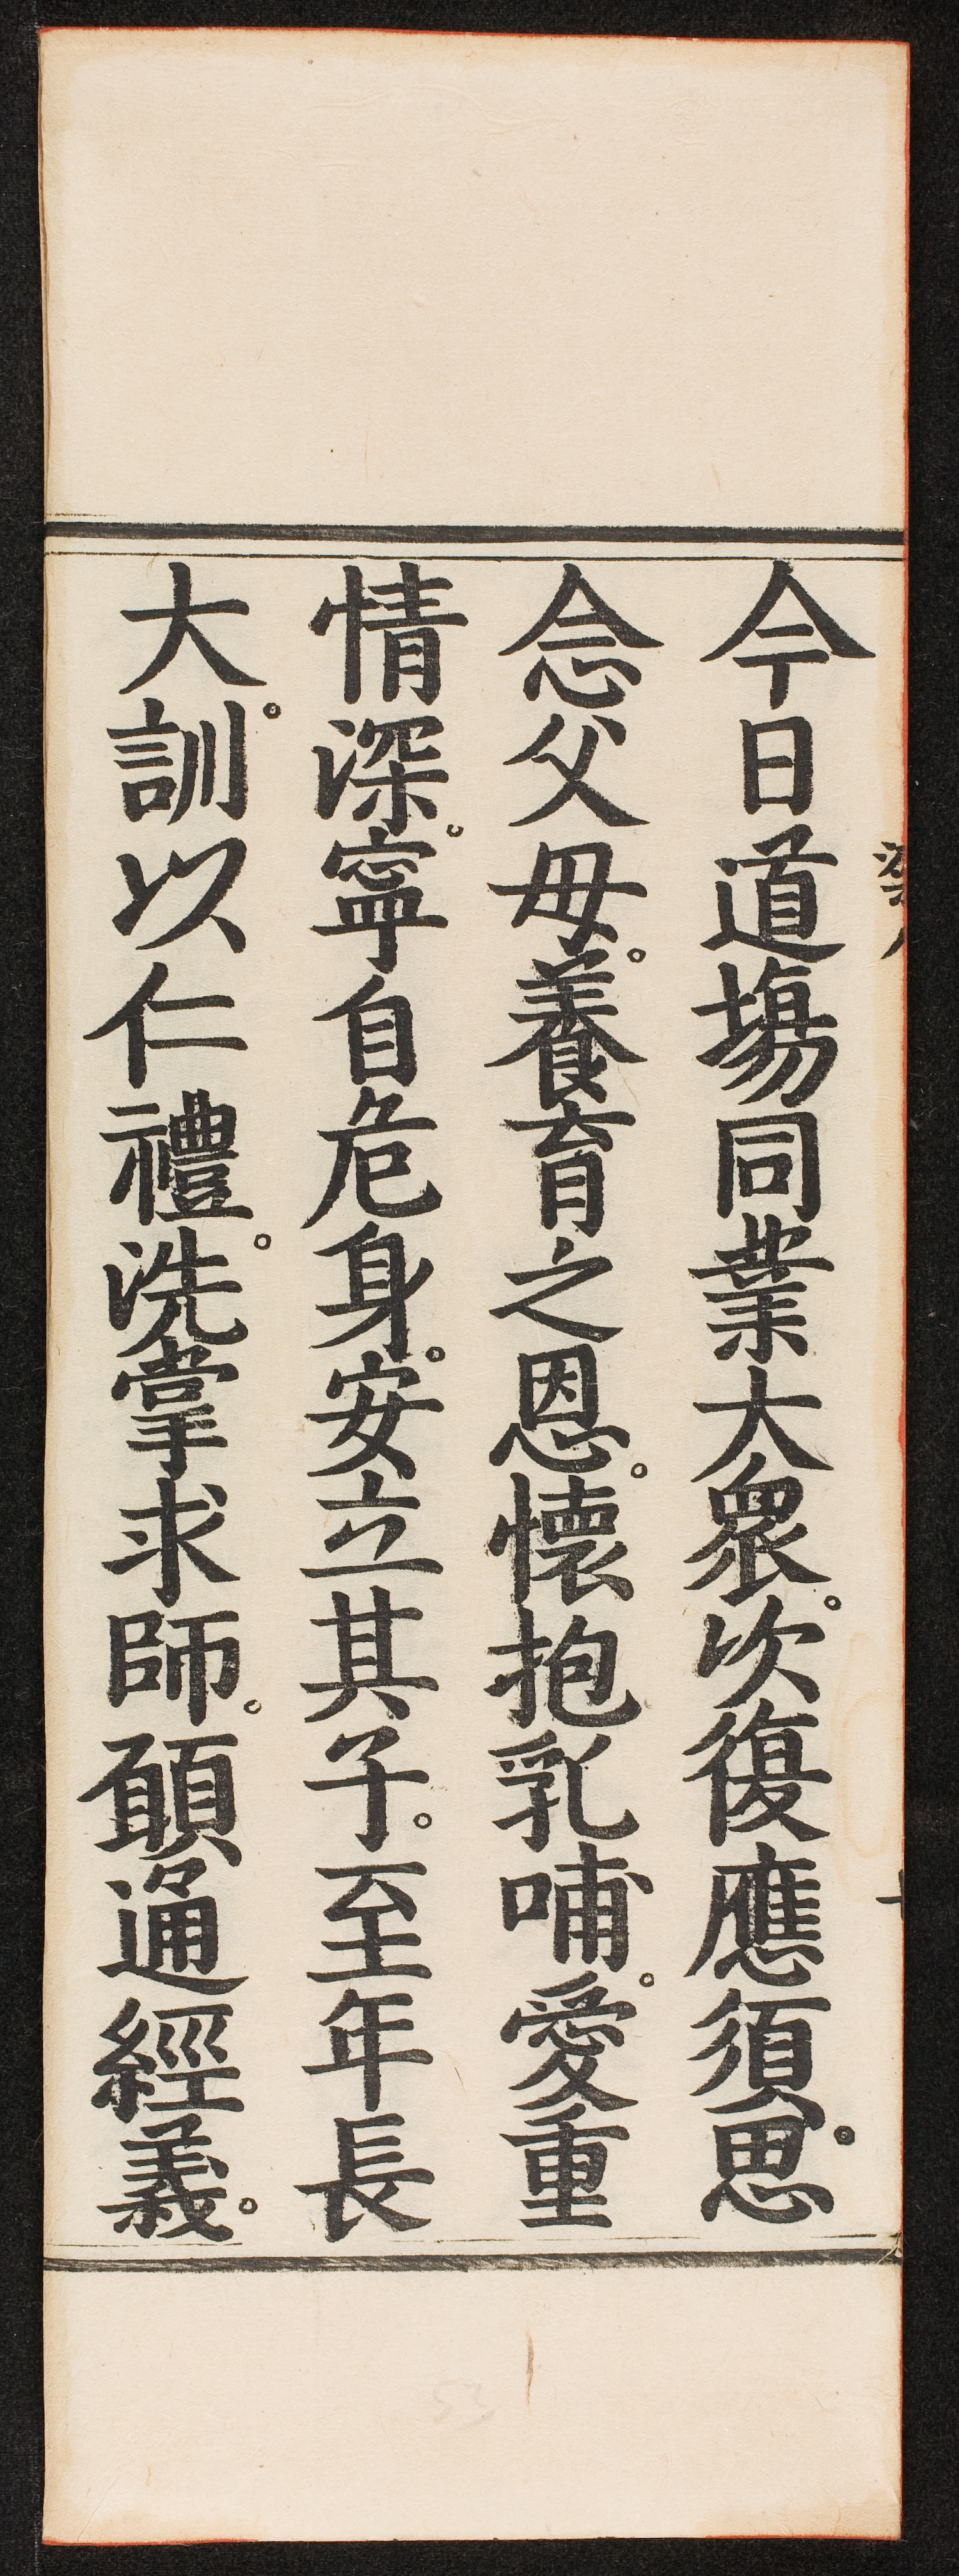 今日道場同業大眾。次復應須思。
念父母。養育之恩。懷抱乳哺。愛重
情深。寧自危身。安立其子。至年長
大。訓以仁禮。洗掌求師。願通經義。